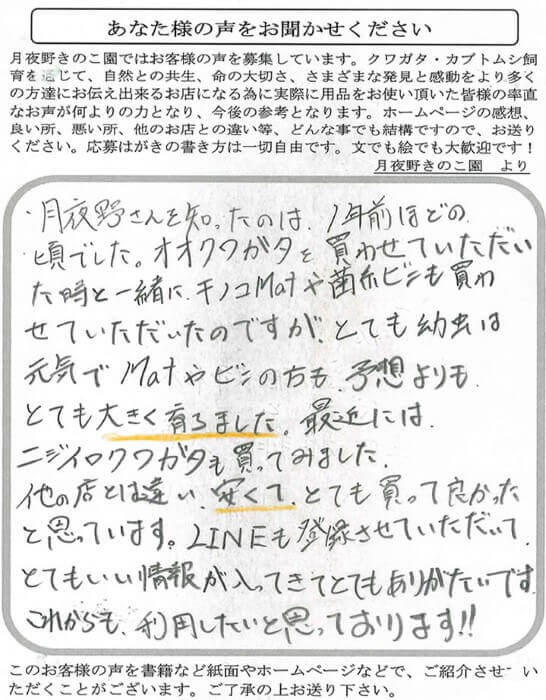 あなた様の声をお聞かせください
月夜野きのこ園ではお客様の声を募集しています。クワガタ・カブトムシ飼
育を通じて、自然との共生、命の大切さ、さまざまな発見と感動をより多く
の方達にお伝え出来るお店になる為に実際に用品をお使い頂いた皆様の率直
なお声が何よりの力となり、今後の参考となります。ホームページの感想、
良い所、悪い所、他のお店との違い等、どんな事でも結構ですので、お送り
ください。応募はがきの書き方は一切自由です。文でも絵でも大歓迎です！
月夜野きのこ園　より
・月夜野さんを知ったのは、1年前ほどの
頃でした。オオクワガタを買わせていただい
た時と一緒に、キノコMatや菌糸ビンも買わ
せていただいたのですが、とても幼虫は
元気でMatやビンの方も、予想よりも、
とても大きく育ちました。最近には、
ニジイロクワガタも買ってみました。
他の店とは違い、安くて、とても買って良かった
と思っています。LINEも登録させていただいて、
とてもいい情報が入ってきてとてもありがたいです。
これからも、利用したいと思っております!!
このお客様の声を書籍など紙面やホームページなどで、ご紹介させてい
ただくことがございます。ご了承の上お送り下さい。